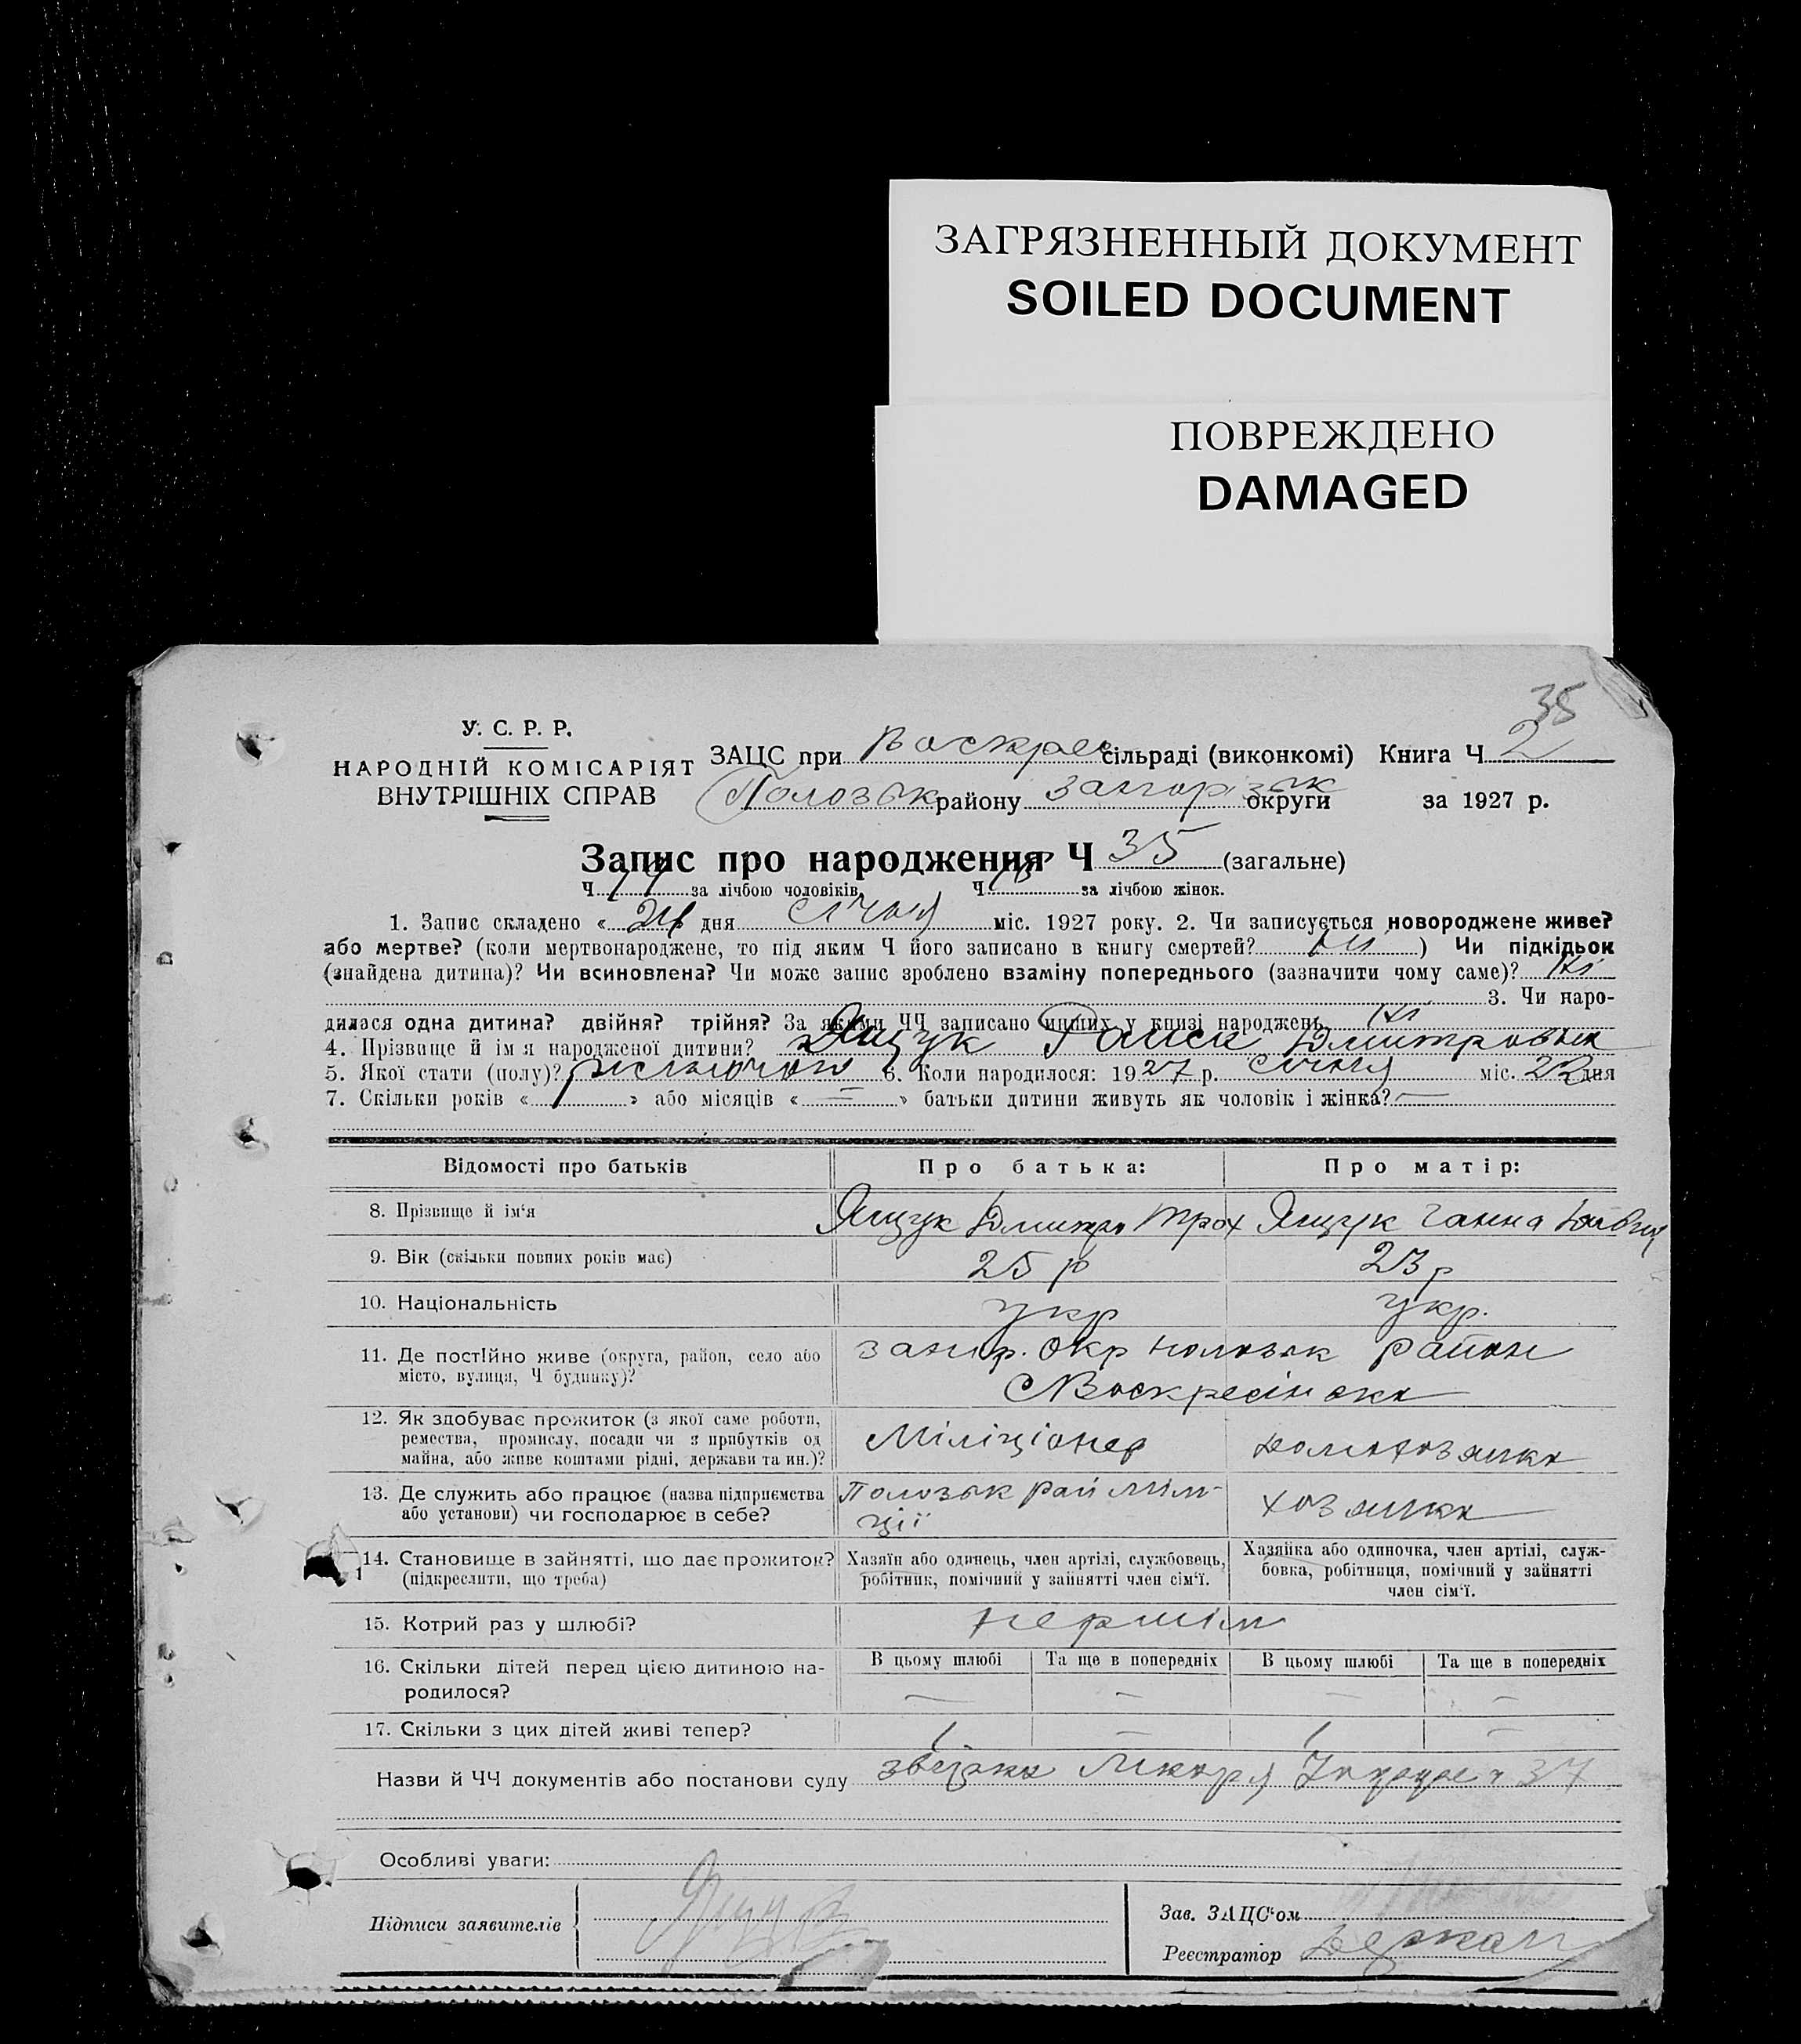 ЗАГРЯЗНЕННЫЙ ДОКУМЕНТ
SOILED DOCUMENT
ПОВРЕЖДЕНО
DAMAGED
35
У. С. Р. Р.
НАРОДНІЙ КОМІСАРІЯТ
ВНУТРІШНІХ СПРАВ
ЗАЦС при Воскрес сільраді (виконкомі) Книга Ч 2
Полозьк району Запоріжк округи за 1927 р.
Запис про народження Ч 35 (загальне)
Ч за лічбою чоловіків Ч за лічбою жінок.
1. Запис складено « 24 дня січня міс. 1927 року. 2. Чи записується новороджене живе?
або мертве? (коли мертвонароджене, то під яким Ч його записано в книгу смертей? ні ) Чи підкідьок
(знайдена дитина)? Чи всиновлена? Чи може запис зроблено взаміну попереднього (зазначити чому саме)? ні
3. Чи наро-
дилася одна дитина? двійня? трійня? За якими ЧЧ записано инших у книзі народжень ні
4. Прізвище й ім я народженої дитини? Ящук Раиса Дмитровна
5. Якої стати (полу)? жіночого 6. Коли народилося: 1927 р. січня міс. 22 дня
7. Скільки років « » або місяців « — » батьки дитини живуть як чоловік і жінка? —
Відомості про батьків Про батька: Про матір:
8. Прізвище й ім'я Ящук Дмитро Трох Ящук Ганна
9. Вік (скільки повних років має) 25 р 23 р
10. Національність укр укр.
11. Де постІйно живе (округа, район, село або
місто, вулиця, Ч будинку)?
Запор. окр Полозьк район
с Воскресінска
12. Як здобуває прожиток (з якої саме роботи,
ремества, промислу, посади чи з прибутків од
майна, або живе коштами рідні, держави та ин.)?
Міліціонер домохозяйка
13. Де служить або працює (назва підприємства
або установи) чи господарює в себе?
Полозьк рай міли-
ції
хозяйка
14. Становище в зайнятті, що дає прожиток?
(підкреслити, що треба)
Хазяїн або одинець, член артілі, службовець,
робітник, помічний у зайнятті член сім'ї.
Хазяйка або одиночка, член артілі, служ-
бовка, робітниця, помічний у зайнятті
член сім'ї.
15. Котрий раз у шлюбі? первім
16. Скільки дітей перед цією дитиною на-
родилося?
В цьому шлюбі Та ще в попередніх В цьому шлюбі Та ще в попередніх
— — — —
17. Скільки з цих дітей живі тепер? 1 — 1 —
Назви й ЧЧ документів або постанови суду звідка лікаря 37
Особливі уваги:
Підписи заявителів Ящук
Зав. ЗАЦС'ом
Реєстратор Деркач